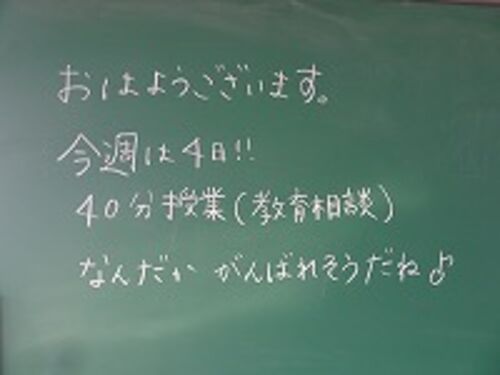 おはようございます。
今週は4日!!
40分授業(教育相談)
なんだか がんばれそうだね♪